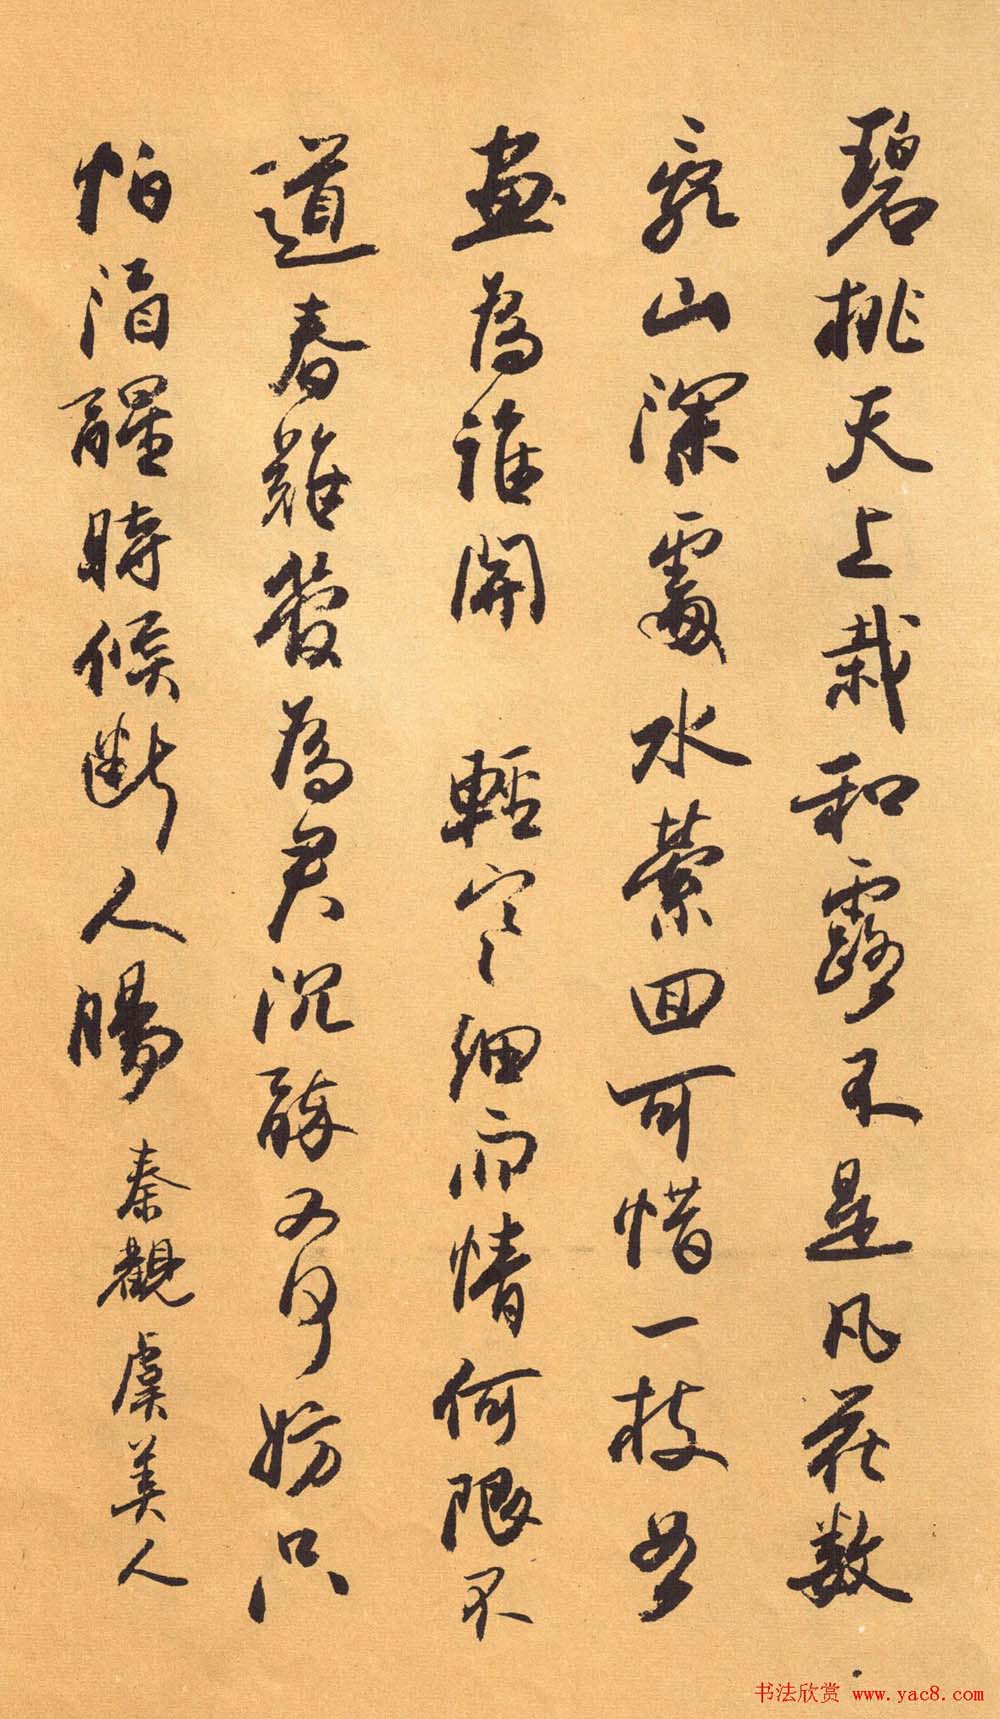 碧桃天上栽和露不是凡花数
亂山深處水縈回可惜一枝如
畫為誰開 輕寒細雨情何限不
道春難管為君沉醉又何妨只
怕酒醒時候斷人腸 秦觀虞美人
书法欣赏 www.yac8.com